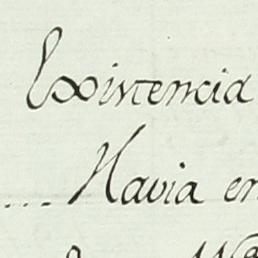 Existencia
.... Havia en